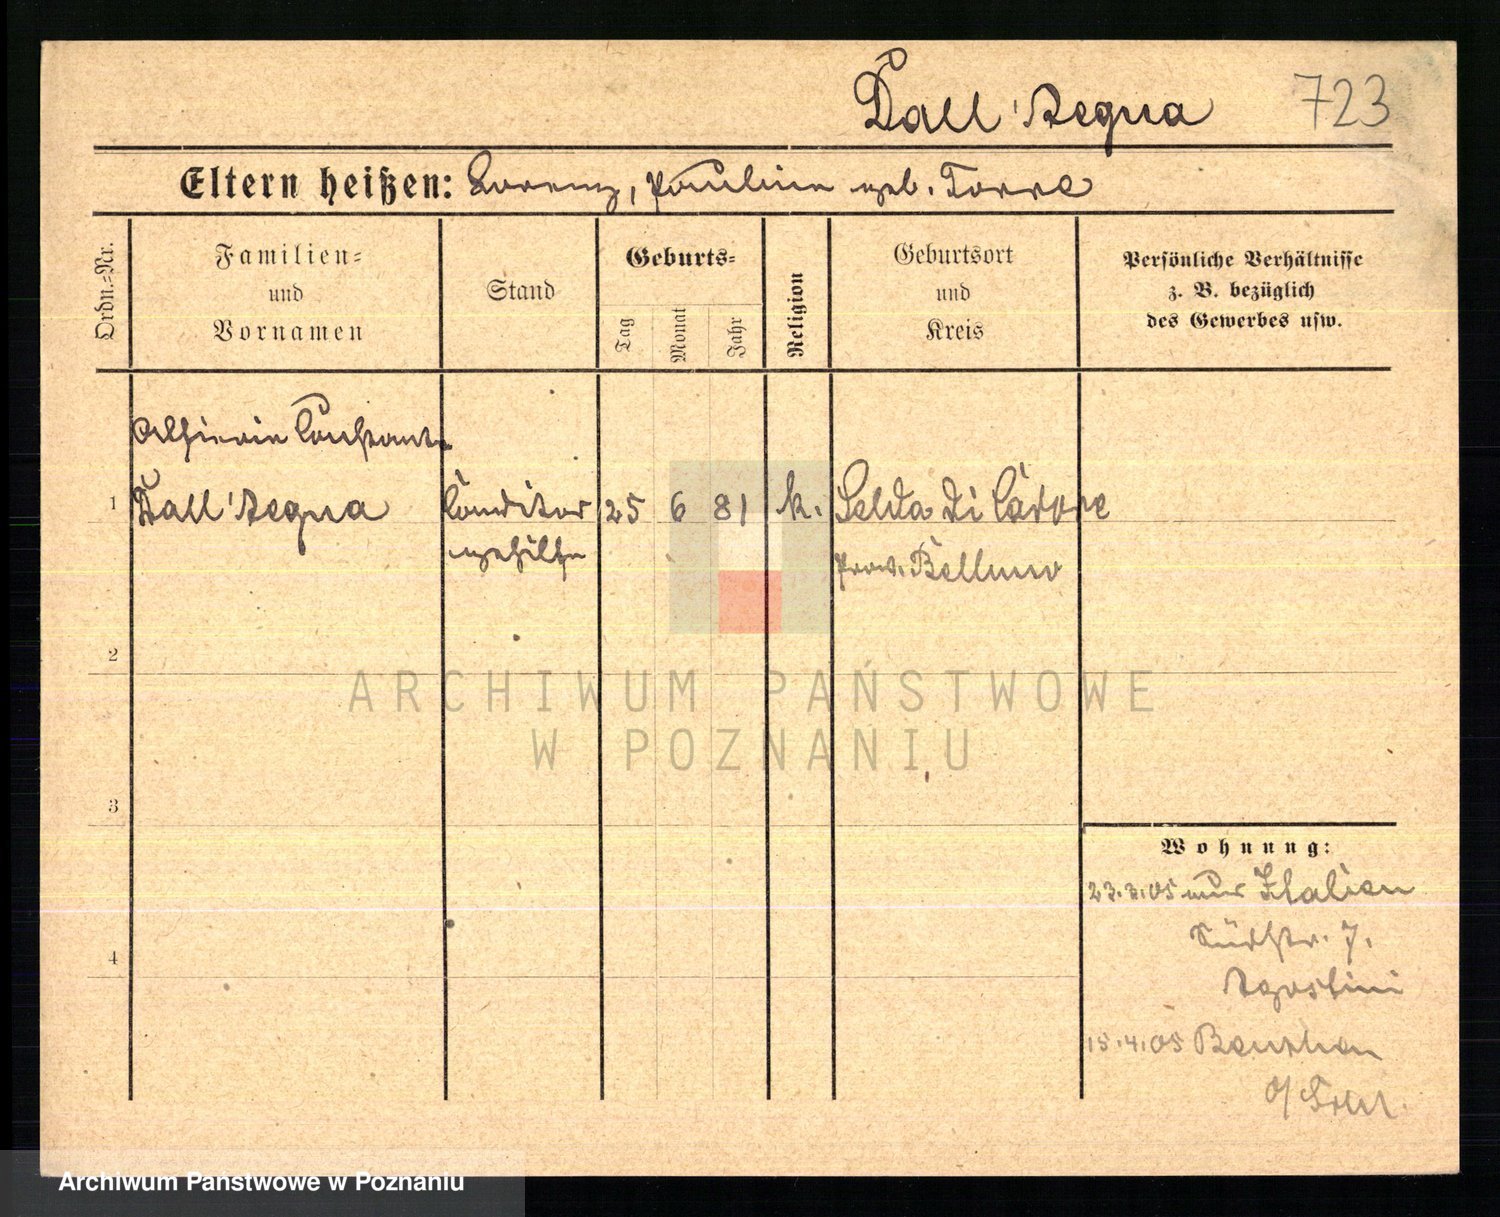 Dall'Acqua 723
Eltern heißen: Lorenz, Pauline geb. Torre
Ordn.=Nr.
Familien=
und
Vornamen
Stand
Geburts=
Tag
Monat
Jahr
Religion
Geburtsort
und
Kreis
Persönliche Verhältnisse
z. B. bezüglich
des Gewerbes usw.
Constante
1 Dall'Acqua Conditor 25 6 81 k. Selva di Cadore
gehilfe Prov. Belluno
2
3
4
Wohnung:
23.3.05 aus Italien
7.
Agostini
15.4.05 Beuthen
ARCHIWUM PAŃSTWOWE
W POZNANIU
Archiwum Państwowe w Poznaniu